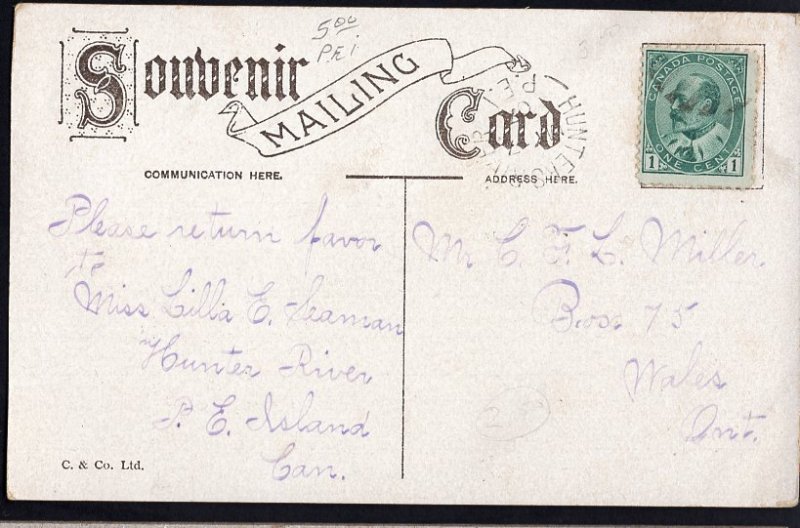 5.00
PEI
Souvenir
MAILING
Card
HUNTER
P.E.I.
CANADA POSTAGE
1 ONE CENT 1
COMMUNICATION HERE.
ADDRESS HERE.
Please return favor
to
Miss Lilla E. Seaman
Hunter River
P. E. Island
Can.
Mr C. F. L. Miller.
Box 75
Wales
Ont.
C. & Co. Ltd.